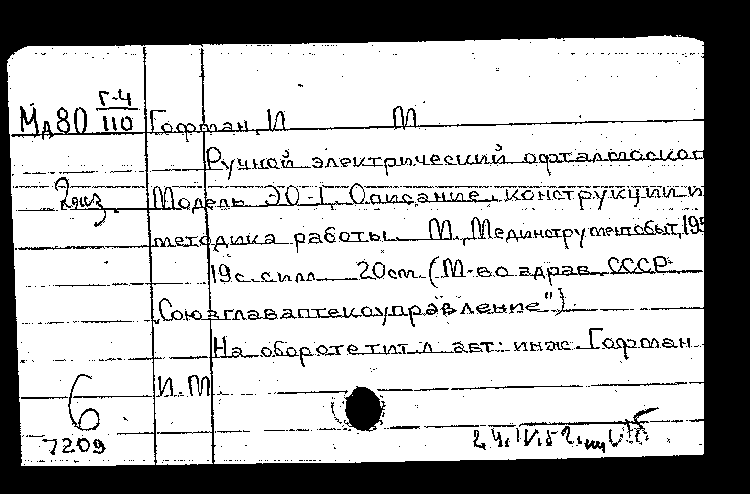 Мд80 Г-4/110
Гофман, И М
Ручной электрический офталмоскоп
2 экз.
Модель ЭО-1. Описание, конструкции и
методика работы. М., Мединструментобыт, 195
19с. с илл 20см (М-во здрав. СССР
"Союзглаваптекоуправление")
На обороте тит. л авт: инж. Гофман
И. М
6
7209